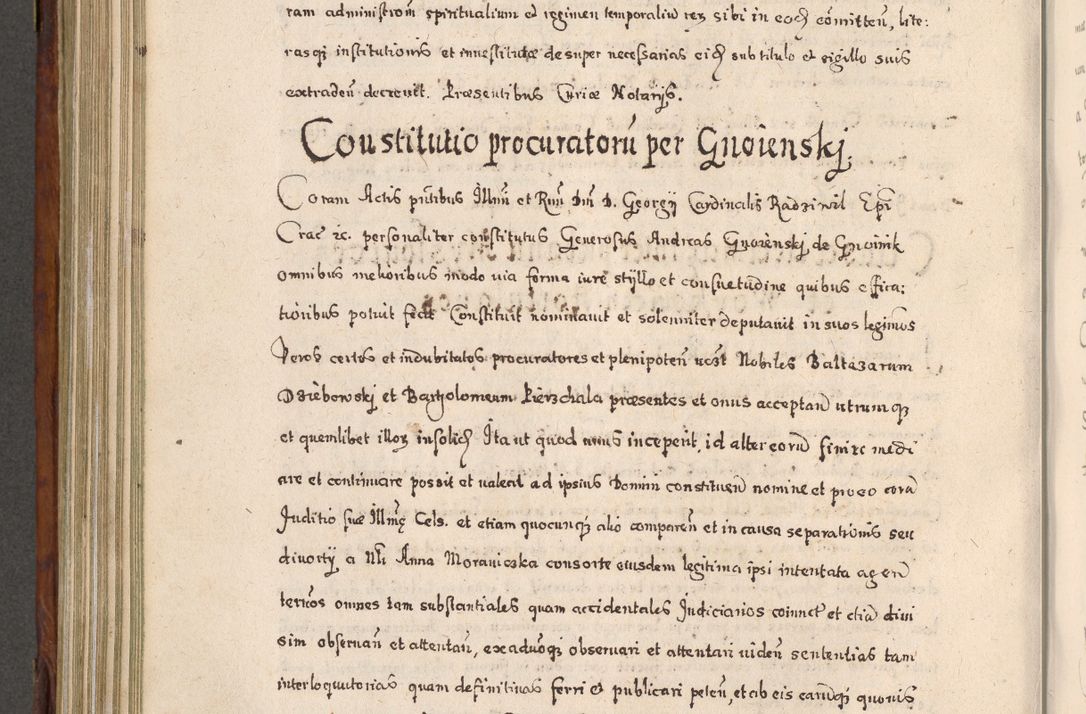 ram administrom spiritualium et regimen temporaliu rez sibi in eod comitten, lite:
rasq institutionis et inuestiturae desuper necessarias eid sub titulo et sigillo suis
extraden decreuit. Praesentibus Curiae Notarijs.
Constitutio procuratorū per Gnoienskj.
Coram Actis pntibus Illmi et Rmi Dni D. Georgij Cardinalis Radziwil Epi
Crac etc. personaliter constitutus Generosus Andreas Gnoienskj de Gnoinik
omnibus melioribus modo uia forma iure stÿllo et consuetudine quibus effica:
tioribus potuit fecit Constituit nominauit et solenniter deputauit in suos legimos
Veros certos et indubitatos procuratores et plenipoten uczt Nobiles Baltazarum
Dziebowskj et Bartolomeum Pierzchala praesentes et onus acceptan utrumq
et quemlibet illoz insolid Ita ut quod unus inceperit, id alter eorū finire medi
are et continuare possit et ualeat ad ipsius Domini constituen nomine et pro eo cora
Juditio suae Illmae Cels. et etiam quocunq alio comparen et in causa separationis seu
diuortij a Nli Anna Morawiczka consorte eiusdem legitima ipsi intentata agen
terminos omnes tam substantiales quam accidentales Judiciarios coniunct et etia diui
sim obseruan et attentan, ex aduoq obseruari et attentari uiden sententias tam
interloquutorias quam definitiuas ferri et publicari peten, et ab eis earumq quouis